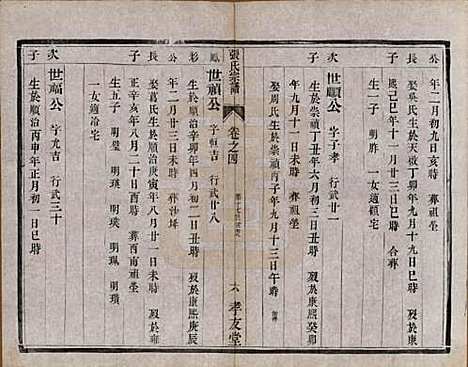 公 年二月初九亥時 葬祖塋
長 娶吳氏生於天啟丁卯年九月十九日巳時 歿於康
熙己巳年十一月廿三日辰時 合葬
子 一 明胙 一女適鎮宅
次 世順公 字子孝 行武廿一
生於崇禎丁丑年六月初三日丑時 歿於康熙癸卯
年九月十一日丑時 葬祖塋
娶周氏生於崇禎丙子年九月十三日午時
張氏宗譜 卷之四
六 孝友堂
鳳 世禎公 字恒吉 行武廿八
彩 生於順治辛卯年四月初二日丑時 歿於康熙庚辰
公 年二月廿三日未時 葬沙埣
長 娶葛氏生於順治庚寅年八月廿一日丑時 歿於雍
正癸卯年八月二十日酉時 葬酉南祖塋
子 生五子 明璧 明瑛 明瑤 明珮 明瓚
一女適冶宅
次 世福公 字九吉 行武三十
子 生於順治丙申年正月初一日巳時